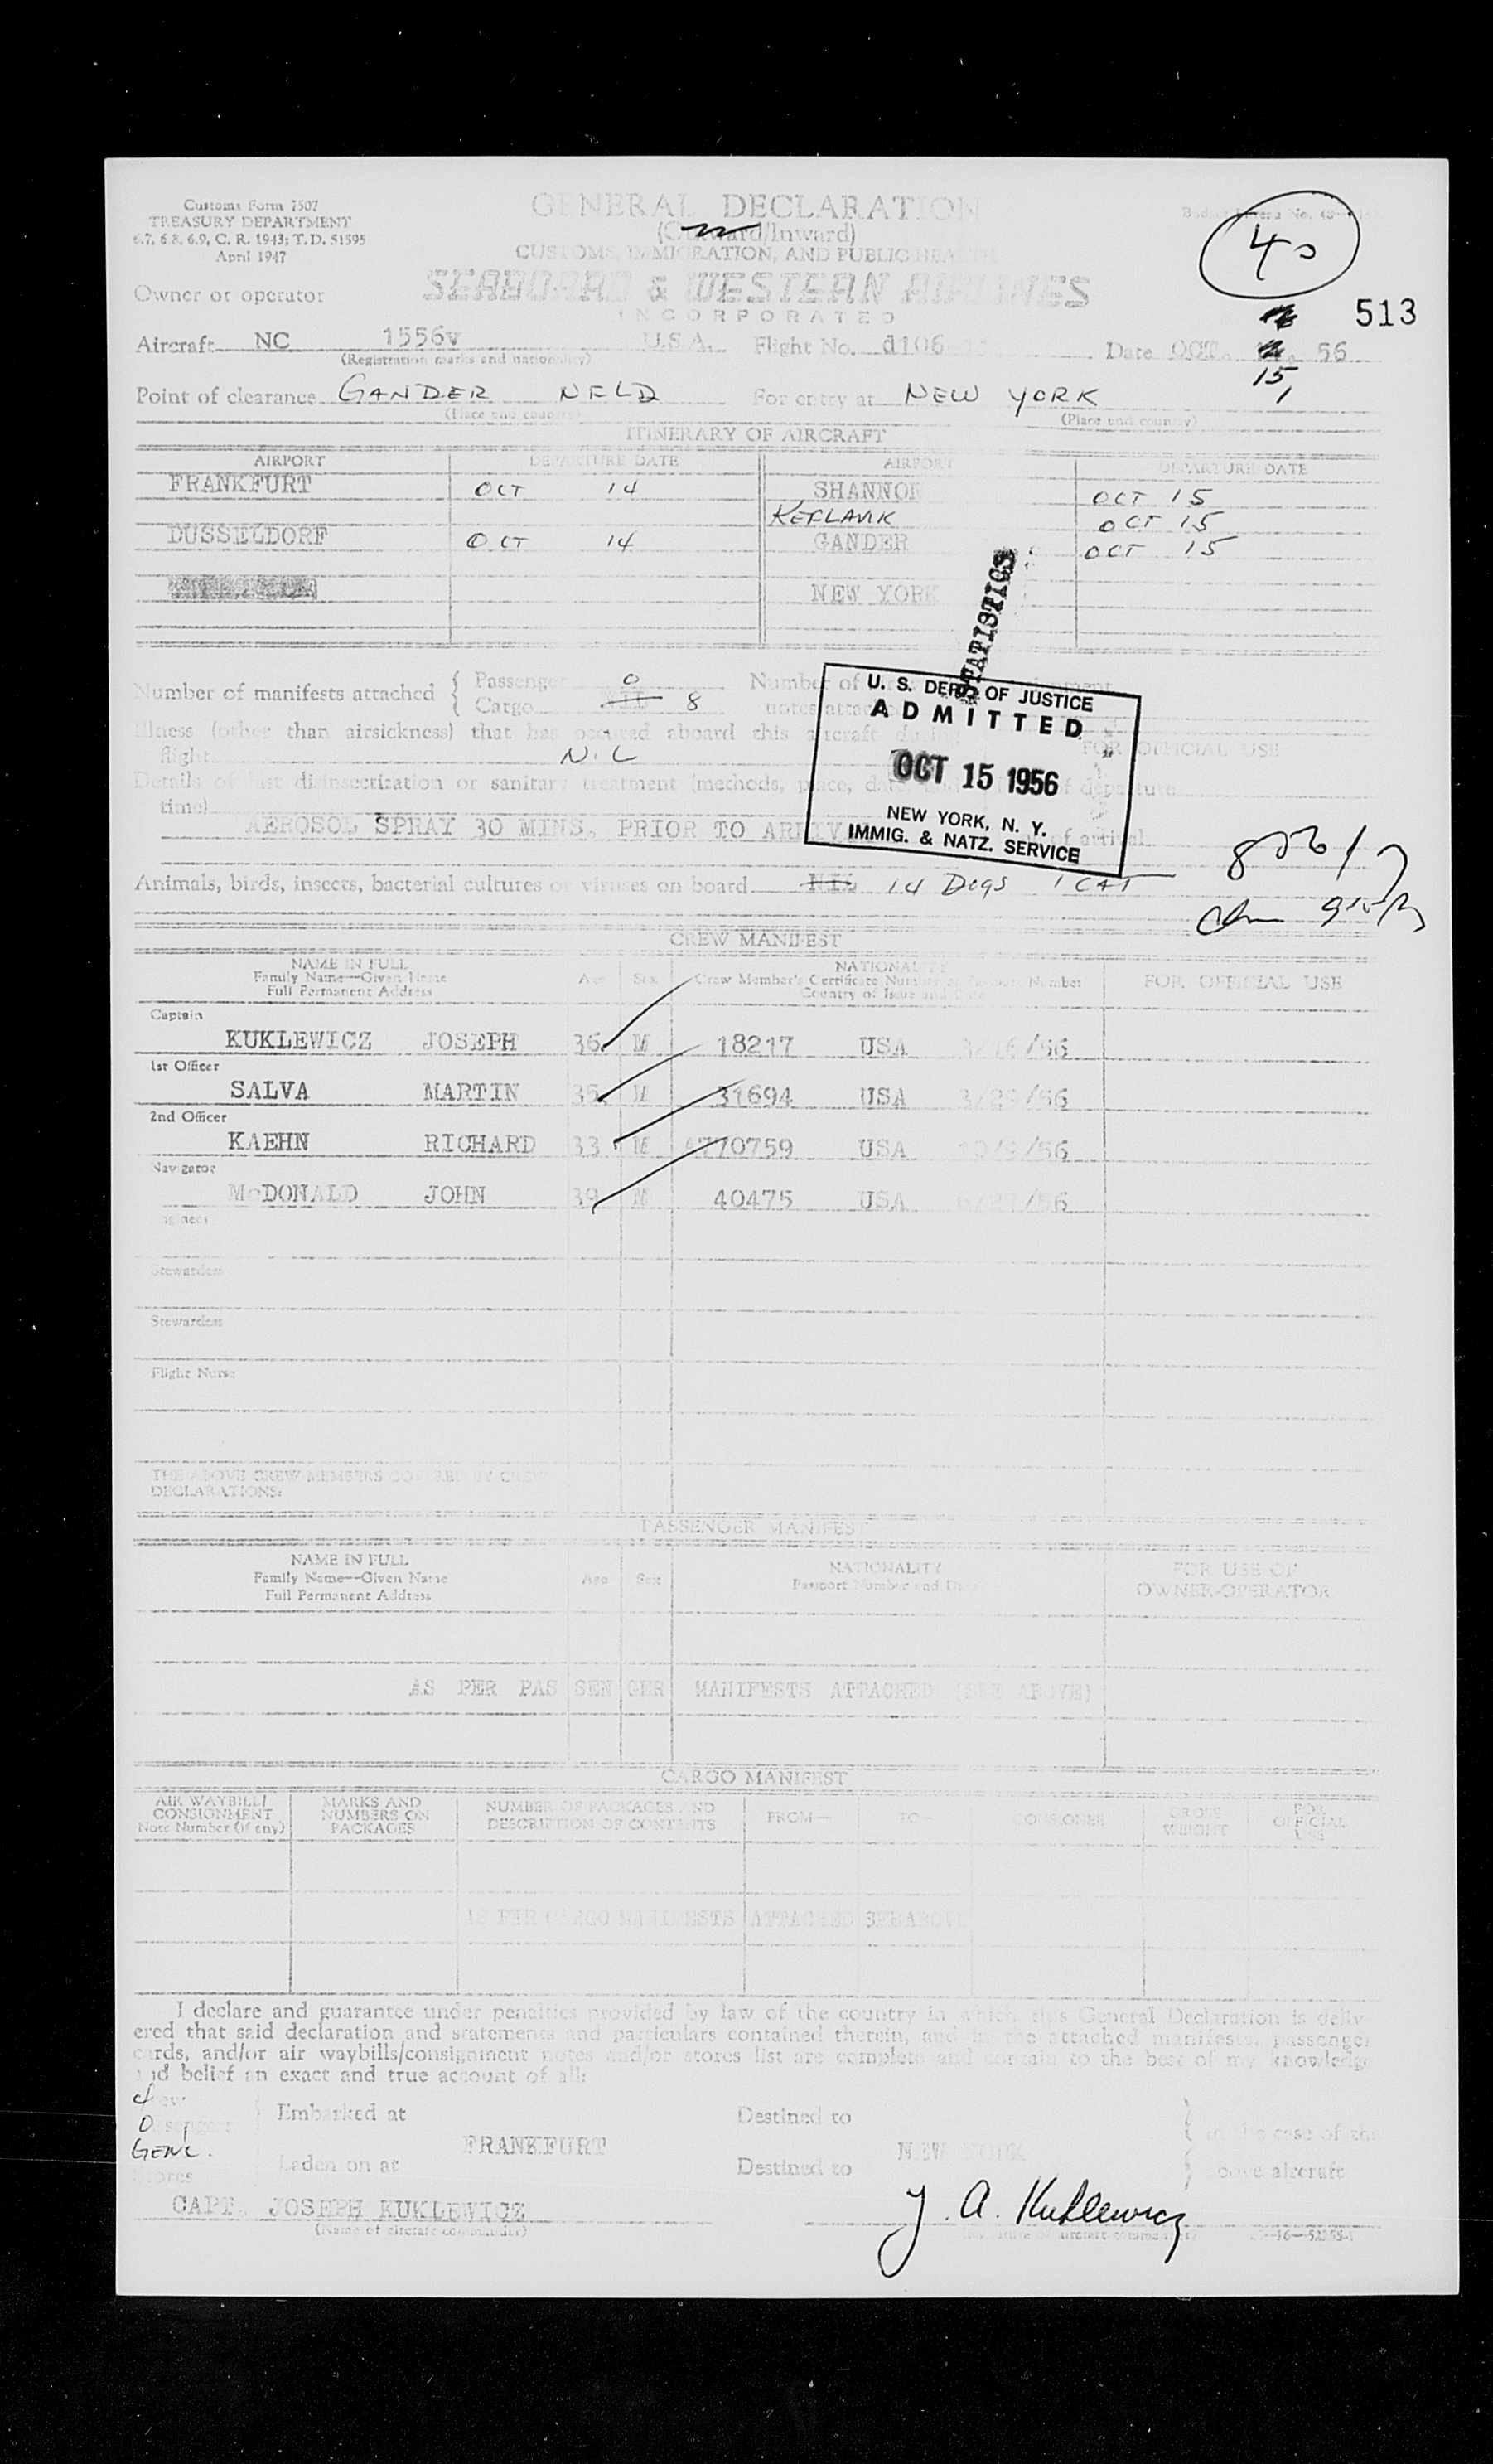 Customs Form 7507
TREASURY DEPARTMENT
6.7, 6.8, 6.9, C. R. 1943; T.D. 51595
April 1947
GENERAL DECLARATION
(Outward/Inward)
CUSTOMS, IMMIGRATION, AND PUBLIC HEALTH
40
513
Owner or operator SEABOARD & WESTERN AIRLINES
INCORPORATED
Aircraft NC 1556v U.S.A. Flight No. d106 Date OCT. 15, 56
(Registration marks and nationality)
Point of clearance GANDER NFLD For entry at NEW YORK
(Place and country) (Place and country)
ITINERARY OF AIRCRAFT
AIRPORT DEPARTURE DATE AIRPORT DEPARTURE DATE
FRANKFURT OCT 14 SHANNON OCT 15
KEFLAVIK OCT 15
DUSSELDORF OCT 14 GANDER OCT 15
NEW YORK
STATISTICS
Number of manifests attached { Passenger 0 Number of
Cargo NIL 8 notes attached
U. S. DEPT. OF JUSTICE
ADMITTED
OCT 15 1956
NEW YORK, N. Y.
IMMIG. & NATZ. SERVICE
Illness (other than airsickness) that has occured aboard this aircraft during
flight NIL FOR OFFICIAL USE
Details of last disinsectization or sanitary treatment (methods, place, date of departure
time)
AEROSOL SPRAY 30 MINS. PRIOR TO ARRIV of arrival
Animals, birds, insects, bacterial cultures or viruses on board NIL 14 DOGS 1 CAT
CREW MANIFEST
NAME IN FULL
Family Name—Given Name
Full Permanent Address
Age Sex
NATIONALITY
Crew Member's Certificate Number or Passport Number
Country of Issue and Date
FOR OFFICIAL USE
Captain
KUKLEWICZ JOSEPH 36 M 18217 USA 3/16/56
1st Officer
SALVA MARTIN 35 M 31694 USA 3/29/56
2nd Officer
KAEHN RICHARD 33 M 770759 USA 10/9/56
Navigator
McDONALD JOHN 39 M 40475 USA 6/27/56
Engineer
Stewardess
Stewardess
Flight Nurse
THE ABOVE CREW MEMBERS COVERED BY CREW
DECLARATIONS:
PASSENGER MANIFEST
NAME IN FULL
Family Name—Given Name
Full Permanent Address
Age Sex
NATIONALITY
Passport Number and Date
FOR USE OF
OWNER-OPERATOR
AS PER PASSENGER MANIFESTS ATTACHED (SEE ABOVE)
CARGO MANIFEST
AIR WAYBILL/
CONSIGNMENT
Note Number (if any)
MARKS AND
NUMBERS ON
PACKAGES
NUMBER OF PACKAGES AND
DESCRIPTION OF CONTENTS
FROM— TO— CONSIGNEE
GROSS
WEIGHT
FOR
OFFICIAL
USE
AS PER CARGO MANIFESTS ATTACHED
I declare and guarantee under penalties provided by law of the country in which this General Declaration is deliv-
ered that said declaration and statements and particulars contained therein, and in the attached manifests, passenger
cards, and/or air waybills/consignment notes and/or stores list are complete and contain to the best of my knowledge
and belief an exact and true account of all:
4 Crew Embarked at Destined to
0 Passengers in the case of the
GENL. FRANKFURT NEW YORK
Stores Laden on at Destined to above aircraft
CAPT. JOSEPH KUKLEWICZ J. A. Kuklewicz
(Name of aircraft commander) (Signature of aircraft commander)